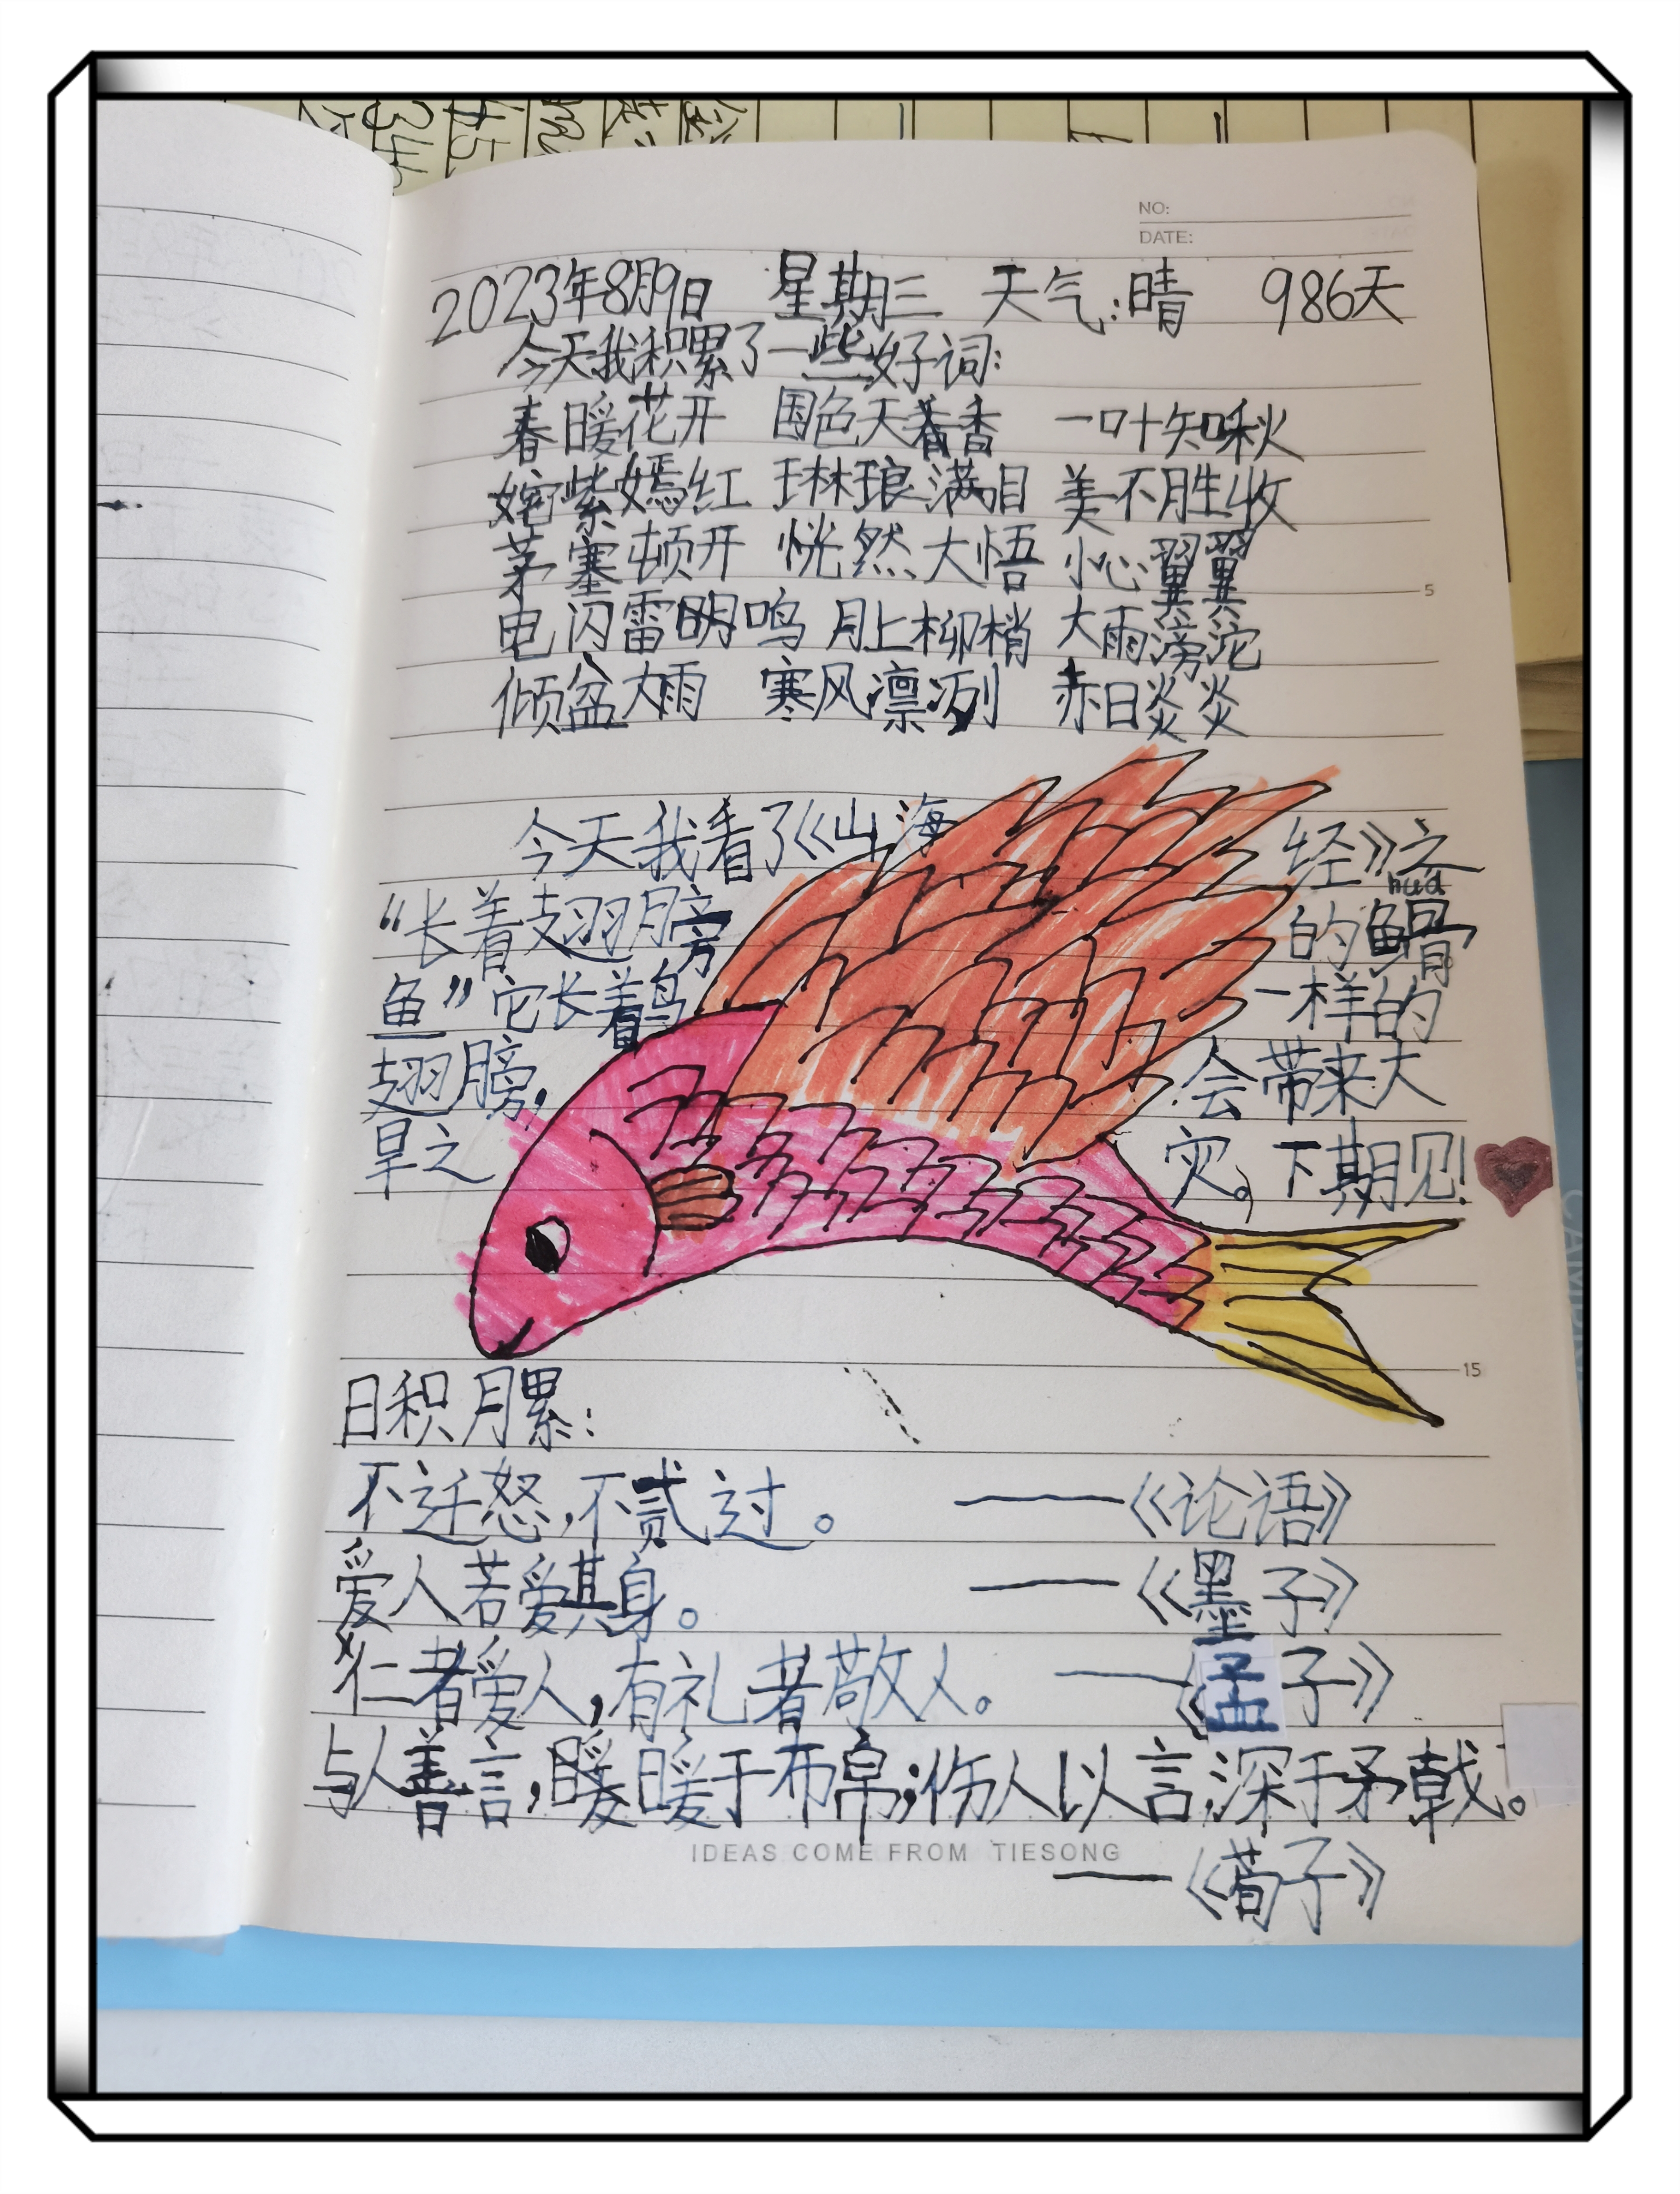 NO:
DATE:
2023年8月9日 星期三 天气:晴 986天
今天我积累了一些好词:
春暖花开 国色天香 一叶知秋
姹紫嫣红 琳琅满目 美不胜收
茅塞顿开 恍然大悟 小心翼翼
电闪雷鸣 月上柳梢 大雨滂沱
倾盆大雨 寒风凛冽 赤日炎炎
5
今天我看了《山海经》之
hua
“长着翅膀的鳛
鱼”它长着鸟一样的
翅膀,会带来大
旱之灾。下期见!
15
日积月累:
不迁怒,不贰过。 ——《论语》
爱人若爱其身。 ——《墨子》
仁者爱人,有礼者敬人。 ——《孟子》
与人善言,暖于布帛;伤人以言,深于矛戟。
IDEAS COME FROM TIESONG
——《荀子》